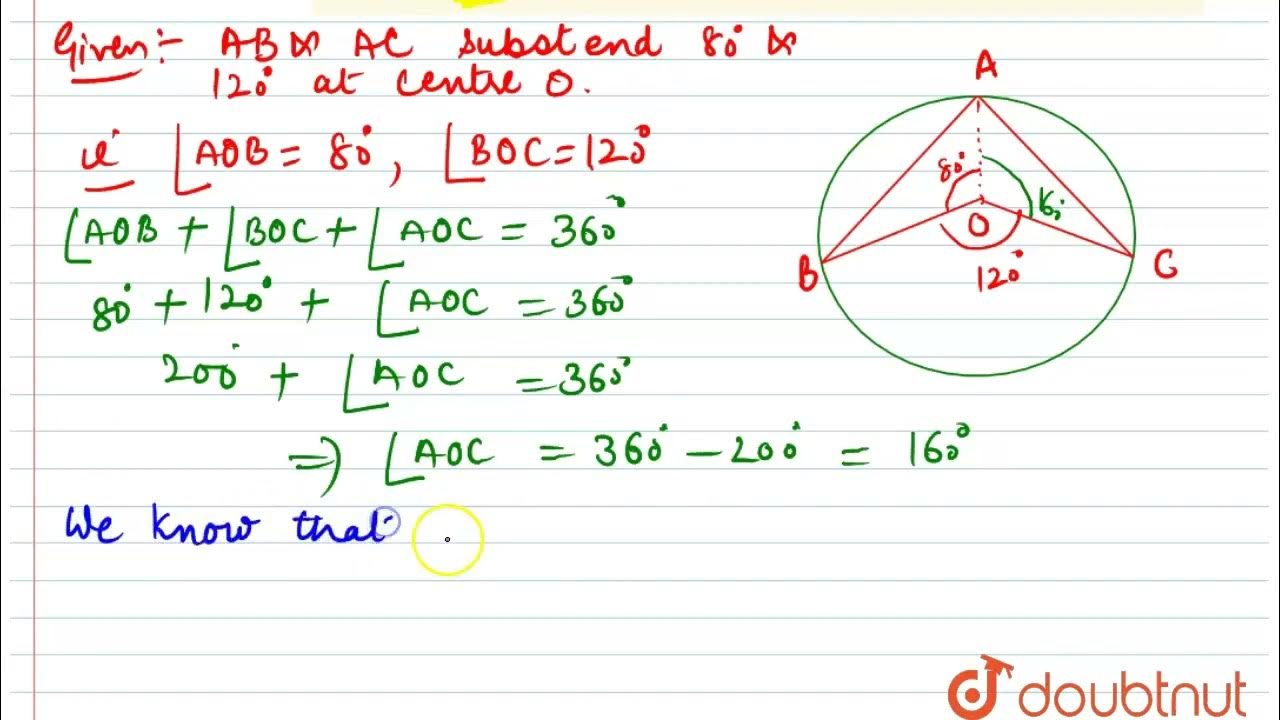 Given:- AB & AC substend 80° &
120° at centre O.
ie ∠AOB = 80°, ∠BOC = 120°
∠AOB + ∠BOC + ∠AOC = 360°
80° + 120° + ∠AOC = 360°
200° + ∠AOC = 360°
=> ∠AOC = 360° - 200° = 160°
We know that
A
80°
O
B
120°
C
doubtnut